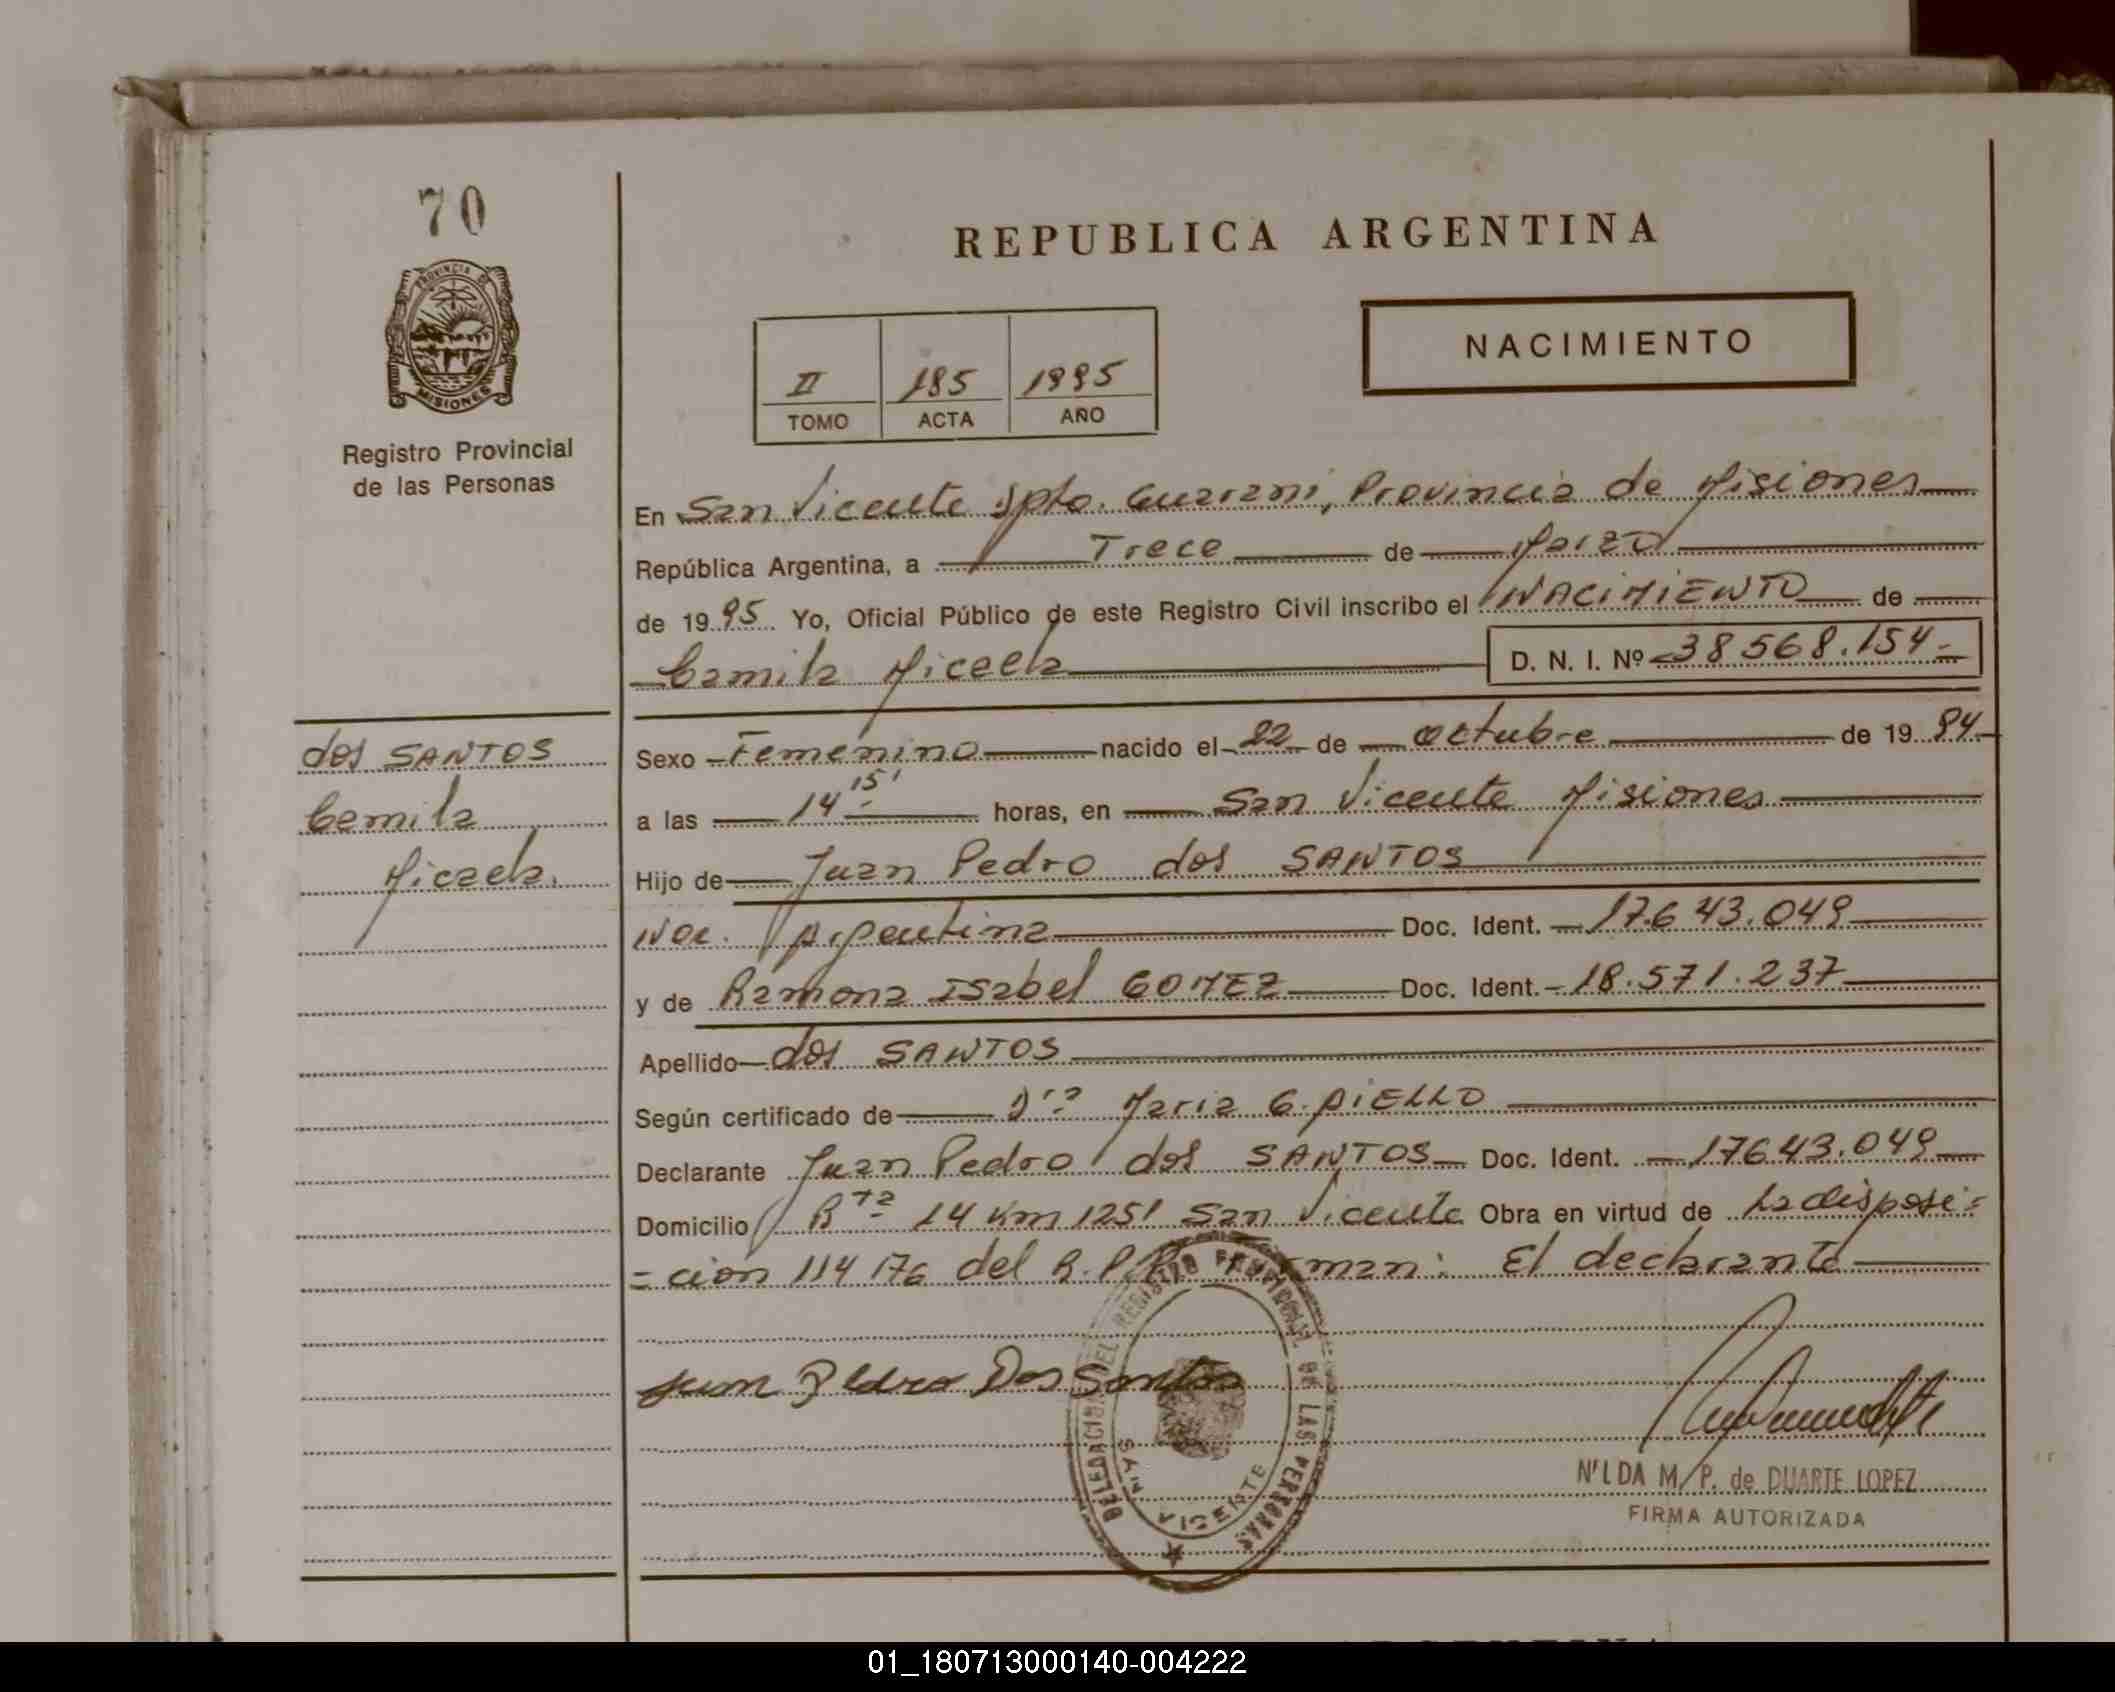 70
REPUBLICA ARGENTINA
PROVINCIA DE
MISIONES
NACIMIENTO
II 185 1995
TOMO ACTA AÑO
Registro Provincial
de las Personas
En San Vicente Dpto. Guarani, Provincia de Misiones
República Argentina, a Trece de Marzo
de 1995 Yo, Oficial Público de este Registro Civil inscribo el NACIMIENTO de
Camila Micaela D. N. I. Nº 38568.154.-
dos SANTOS
Camila
Micaela.
Sexo Femenino nacido el 22 de octubre de 1994.
a las 14 15' horas, en San Vicente Misiones
Hijo de Juan Pedro dos SANTOS
Nac. Argentina Doc. Ident. 17.643.049
y de Ramona Isabel GOMEZ Doc. Ident. 18.571.237
Apellido dos SANTOS
Según certificado de Dra Maria G. AiELLO
Declarante Juan Pedro dos SANTOS Doc. Ident. 17643.049
Domicilio Rta 14 Km 1251 San Vicente Obra en virtud de La disposi=
=cion 114 del R.P. El declarante
Juan Pedro Dos Santos
DELEGACION DEL REGISTRO PROVINCIAL DE LAS PERSONAS
SAN VICENTE
NILDA M. P. de DUARTE LOPEZ
FIRMA AUTORIZADA
01_180713000140-004222